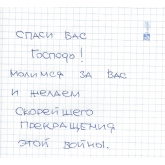 СПАСИ ВАС
ГОСПОДЬ!
МОЛИМСЯ ЗА ВАС
И ЖЕЛАЕМ
СКОРЕЙШЕГО
ПРЕКРАЩЕНИЯ
ЭТОЙ ВОЙНЫ.